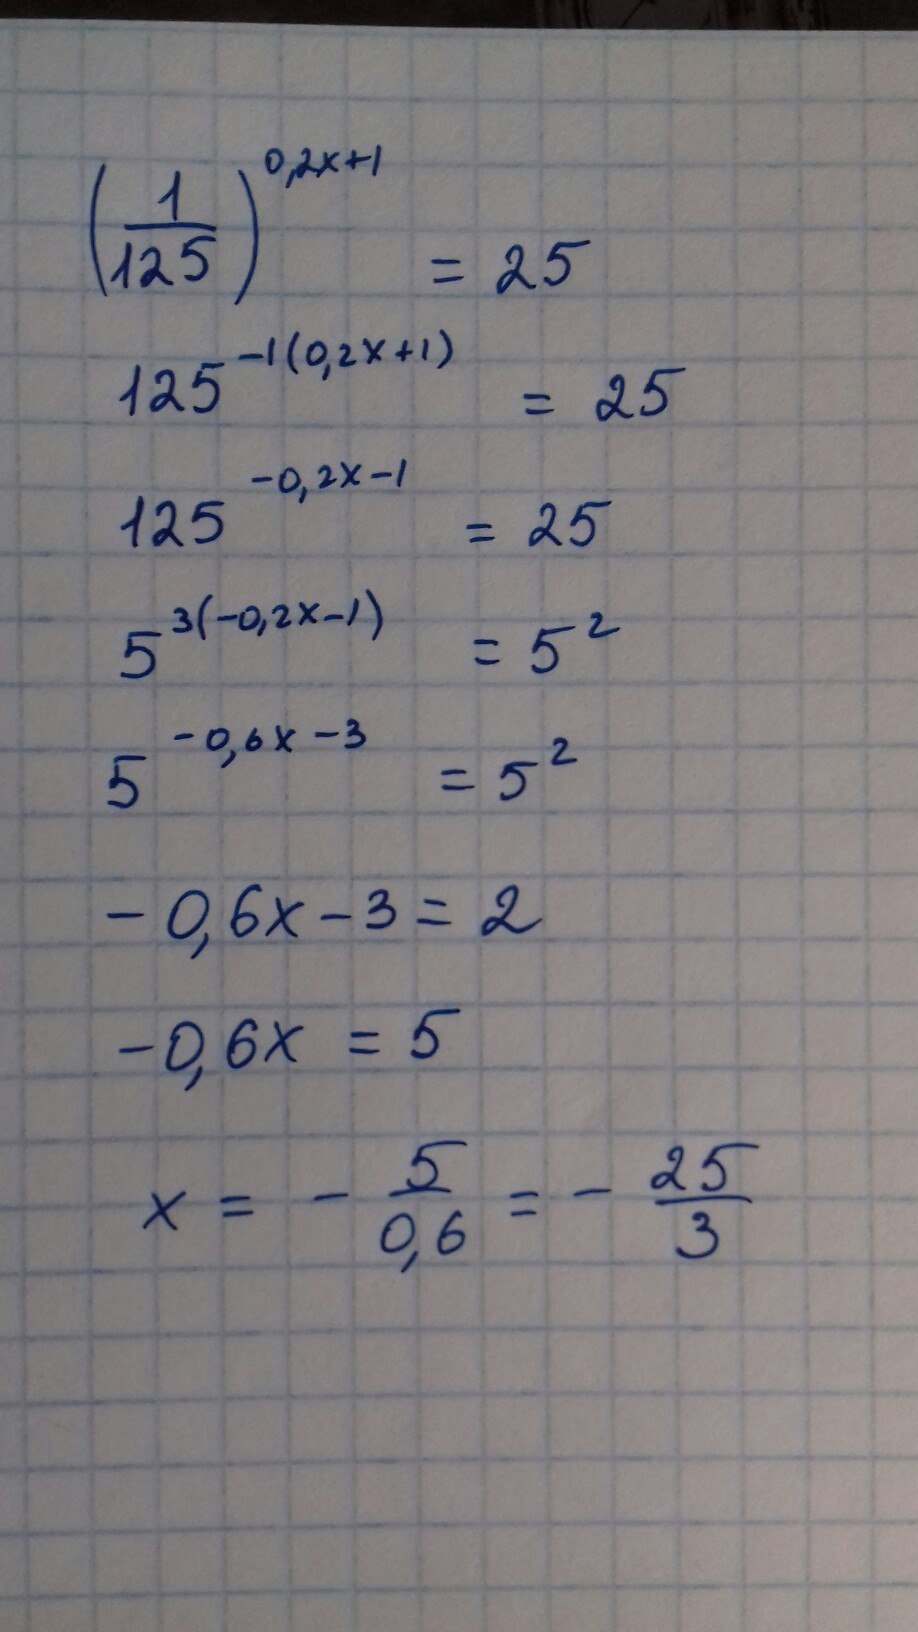 (1/125)^(0,2x+1) = 25
125^(-1(0,2x+1)) = 25
125^(-0,2x-1) = 25
5^(3(-0,2x-1)) = 5^2
5^(-0,6x-3) = 5^2
-0,6x-3=2
-0,6x = 5
x = - 5/0,6 = - 25/3